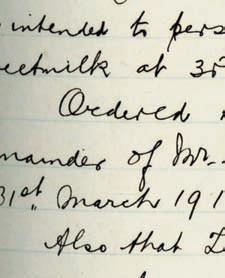 intended to pers
eetmilk at 35
Ordered
mainder of Mr.
31st March 191
Also that